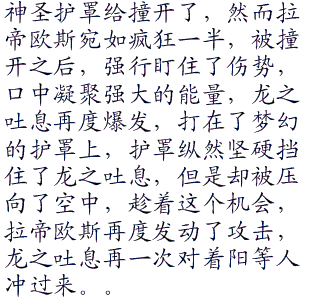 神圣护罩给撞开了，然而拉
帝欧斯宛如疯狂一半，被撞
开之后，强行盯住了伤势，
口中凝聚强大的能量，龙之
吐息再度爆发，打在了梦幻
的护罩上，护罩纵然坚硬挡
住了龙之吐息，但是却被压
向了空中，趁着这个机会，
拉帝欧斯再度发动了攻击，
龙之吐息再一次对着阳等人
冲过来。。